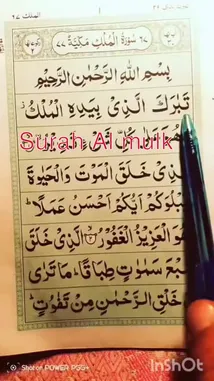 الملك ٦٧
٦٧ سُوْرَةُ الْمُلْكِ مَكِّيَّةٌ ٧٧
بِسْمِ اللهِ الرَّحْمٰنِ الرَّحِيْمِ
تَبٰرَكَ الَّذِیْ بِيَدِهِ الْمُلْكُ
Surah Al mulk
الَّذِیْ خَلَقَ الْمَوْتَ وَالْحَيٰوةَ
اَيُّكُمْ اَحْسَنُ عَمَلًا
الْعَزِيْزُ الْغَفُوْرُ الَّذِیْ خَلَقَ
سَمٰوٰتٍ طِبَاقًا مَا تَرٰی
خَلْقِ الرَّحْمٰنِ مِنْ تَفٰوُتٍ
Shot on POWER
InShOt